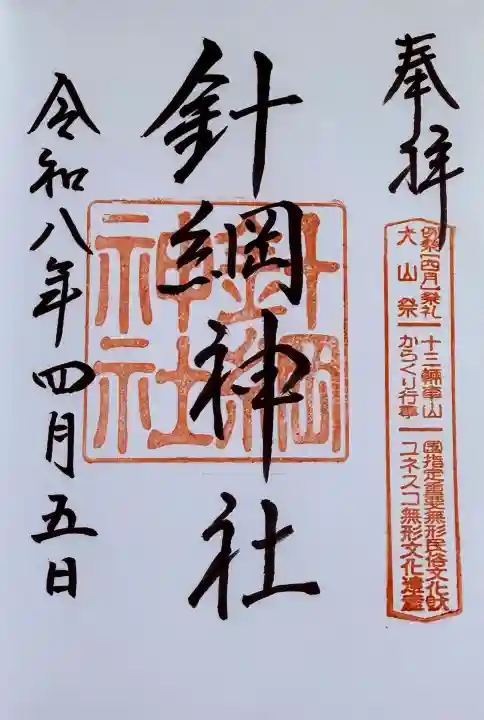 奉拝
例祭[四月]祭礼
犬山祭
十三輛車山
からくり行事
國指定重要無形民俗文化財
ユネスコ無形文化遺産
針綱神社
針綱
神社
令和八年四月五日